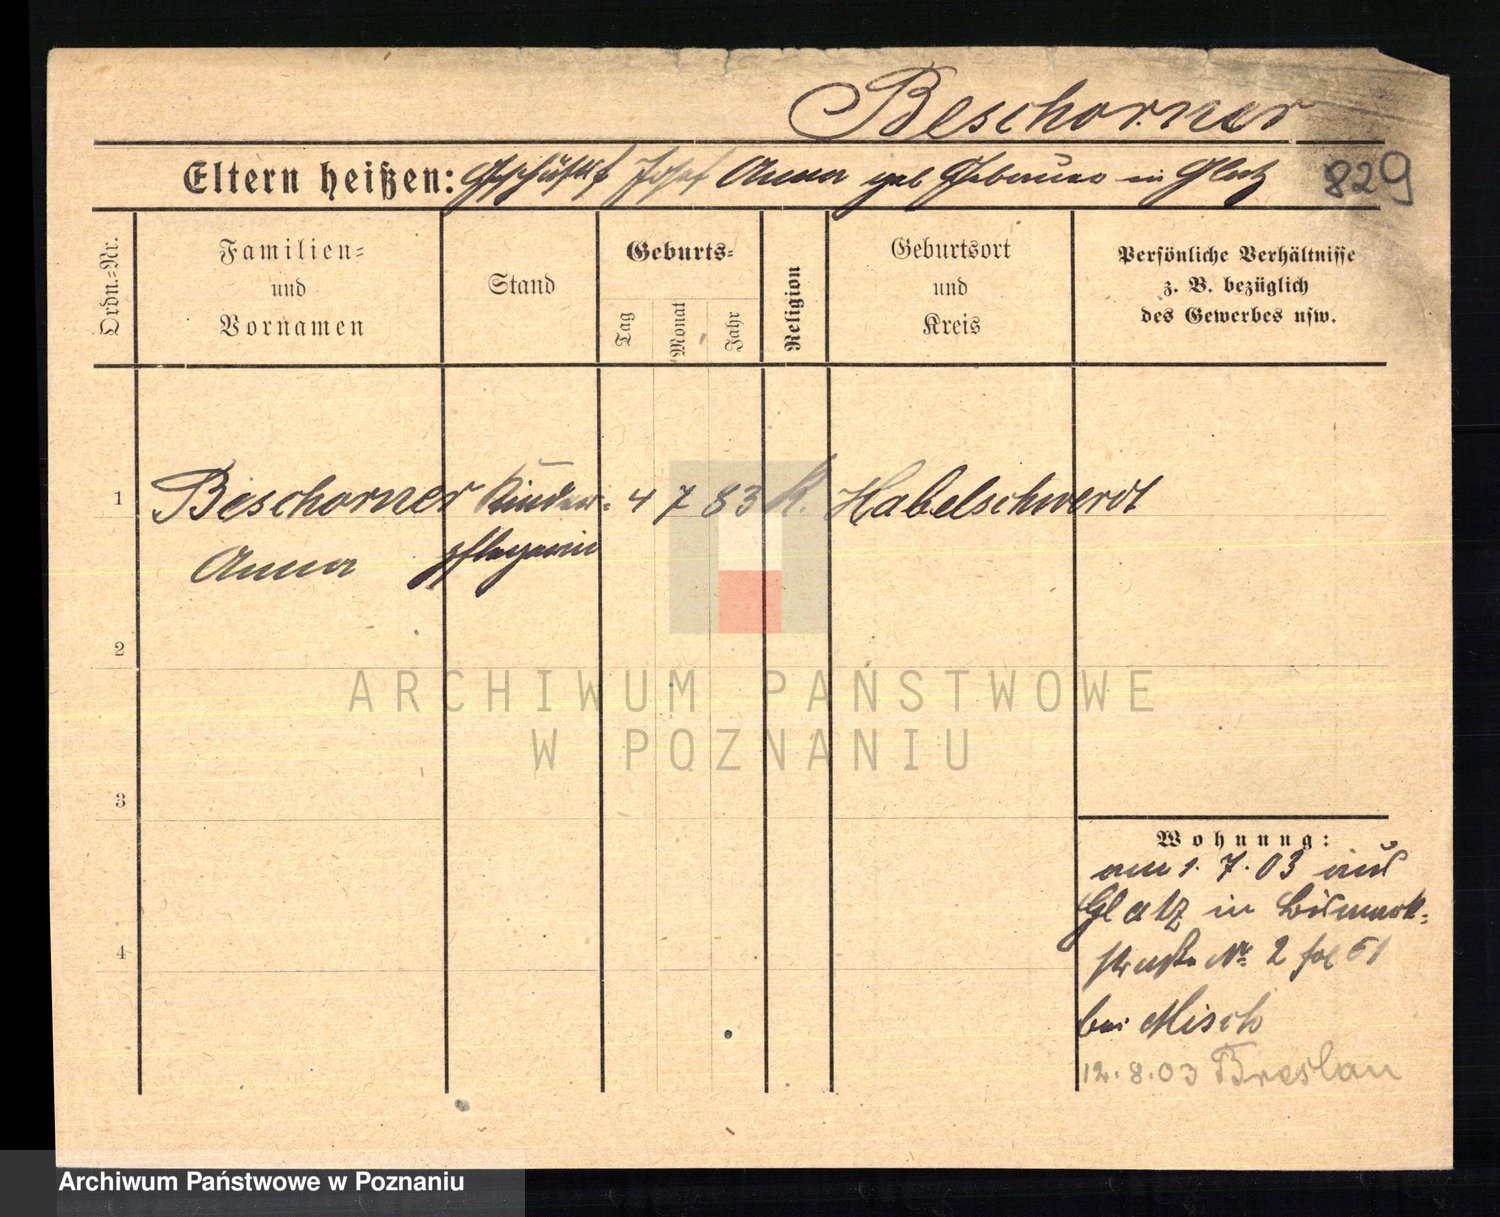 Beschorner
829
Eltern heißen: Josef Anna geb Gebauer in Glatz
Ordn.=Nr.
Familien=
und
Vornamen
Stand
Geburts=
Tag
Monat
Jahr
Religion
Geburtsort
und
Kreis
Persönliche Verhältnisse
z. B. bezüglich
des Gewerbes usw.
1
Beschorner Kinder= 4 7 83 K. Habelschwerdt
Anna pflegerin
2
ARCHIWUM PAŃSTWOWE
W POZNANIU
3
4
Wohnung:
am 1.7.03 aus
Glatz in Bismark=
straße Nr. 2
bei Misch
12.8.03 Breslau
Archiwum Państwowe w Poznaniu